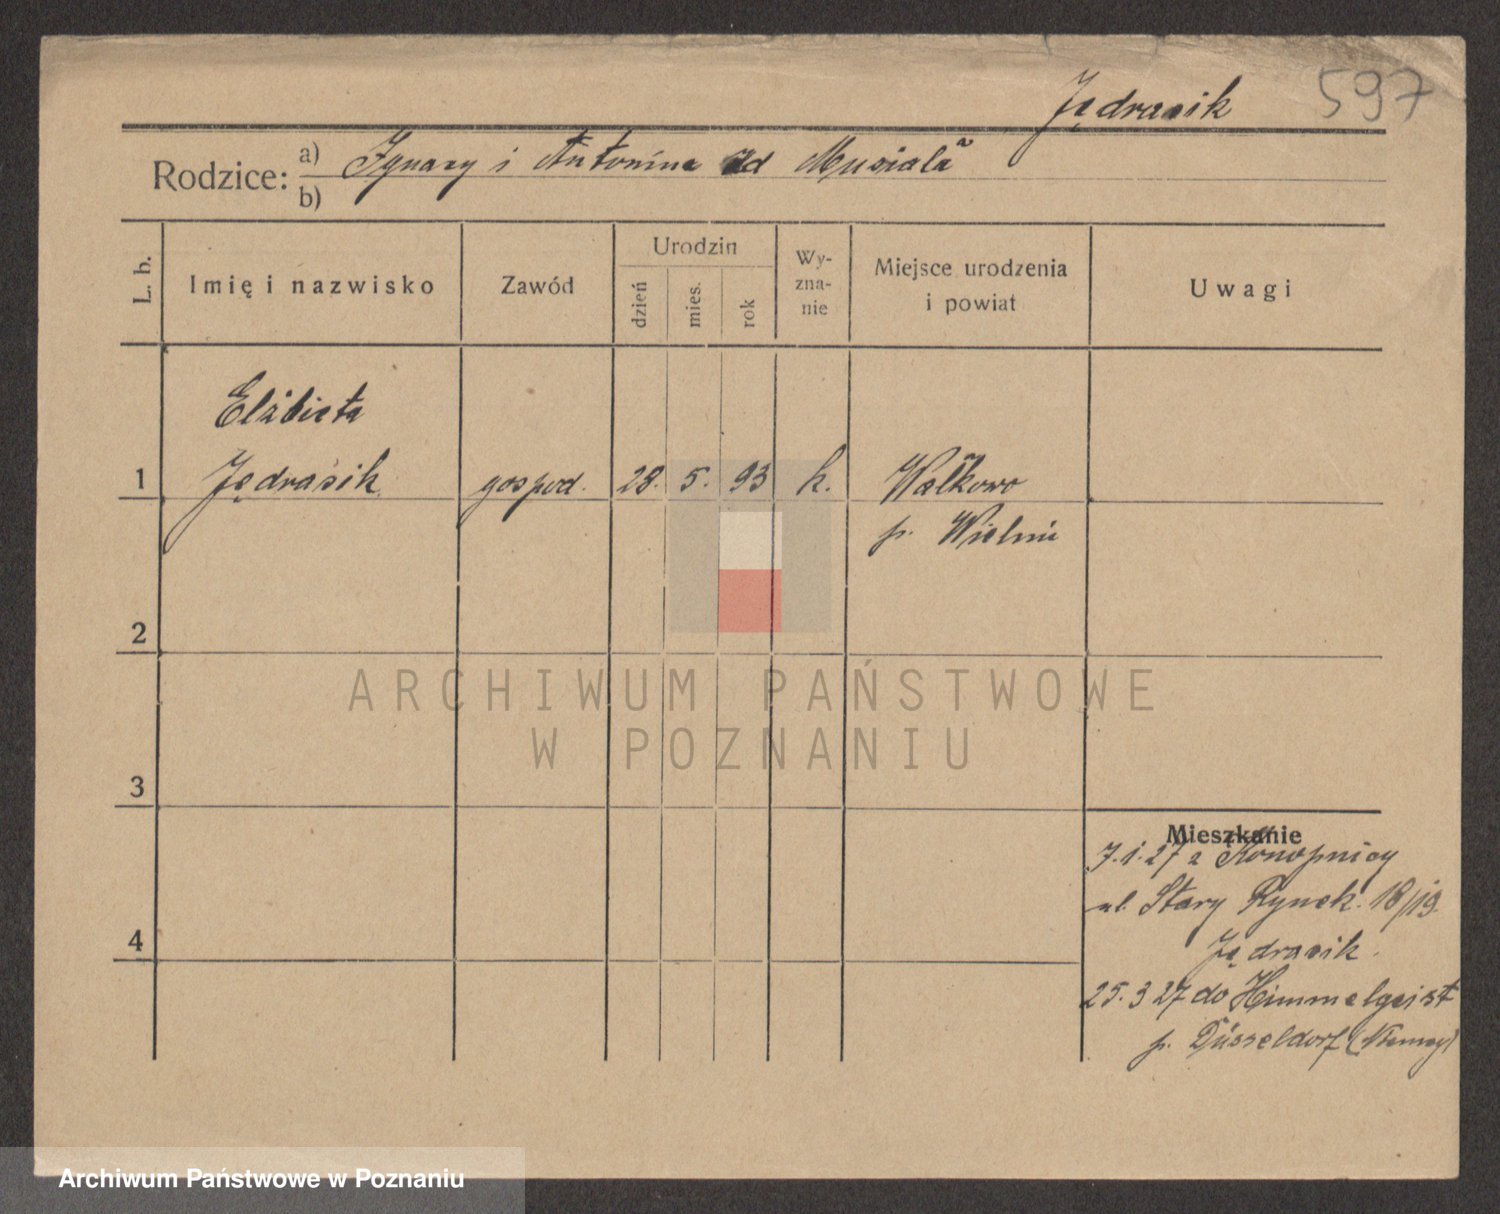 Jędrasik 597
Rodzice: a) Ignacy i Antonina zd Musiała
b)
L. b. Imię i nazwisko Zawód Urodzin dzień mies. rok Wy-zna-nie Miejsce urodzenia i powiat Uwagi
Elżbieta
1 Jędrasik gospod. 28. 5. 93 k. Wałkowo
p. Wieluń
2
ARCHIWUM PAŃSTWOWE
W POZNANIU
3
Mieszkanie
7.1.27 z Konopnicy
ul. Stary Rynek. 18/19.
4
Jędrasik.
25.3 27 do Himmelgeist
p. Düsseldorf (Niemcy)
Archiwum Państwowe w Poznaniu